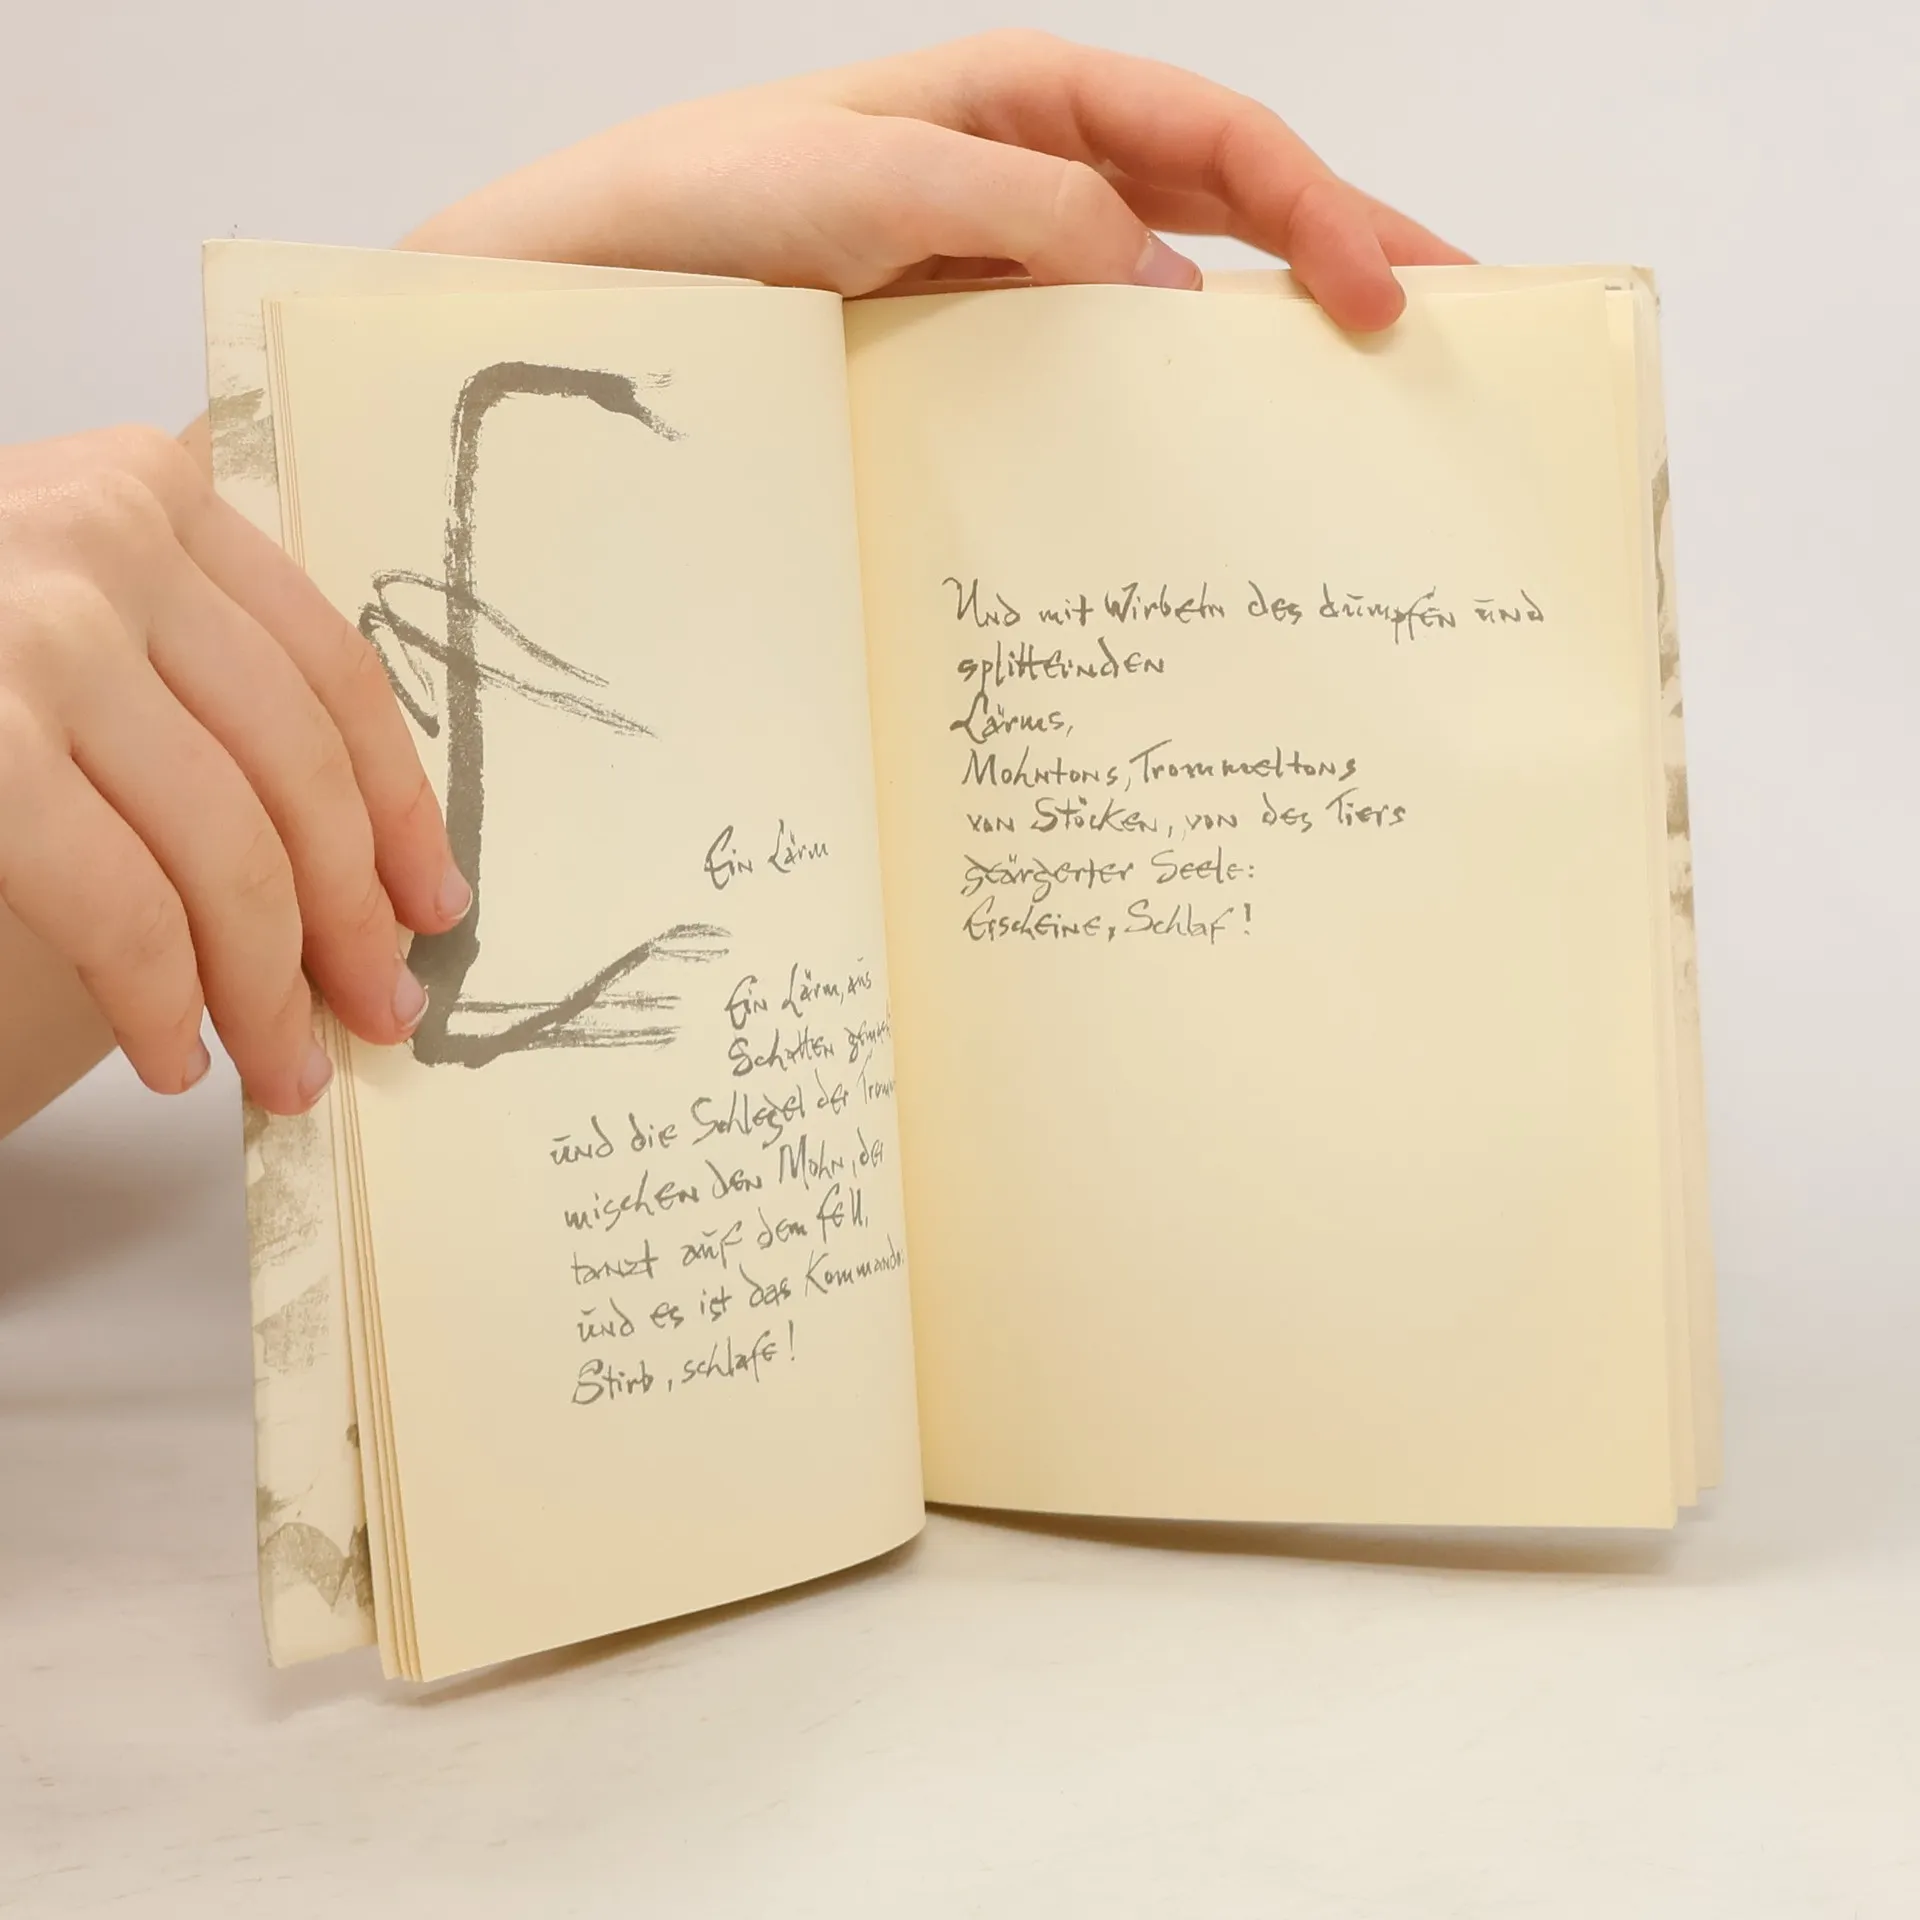 Ein Lärm
Ein Lärm, aus
Schatten
und die Schlegel der
mischen den Mohn, der
tanzt auf dem Fell,
und es ist das Kommando:
Stirb, schlafe!
Und mit Wirbeln des dumpfen und
splitternden
Lärms,
Mohntons, Trommeltons
von Stöcken, von des Tiers
geärgerter Seele:
Erscheine, Schlaf!